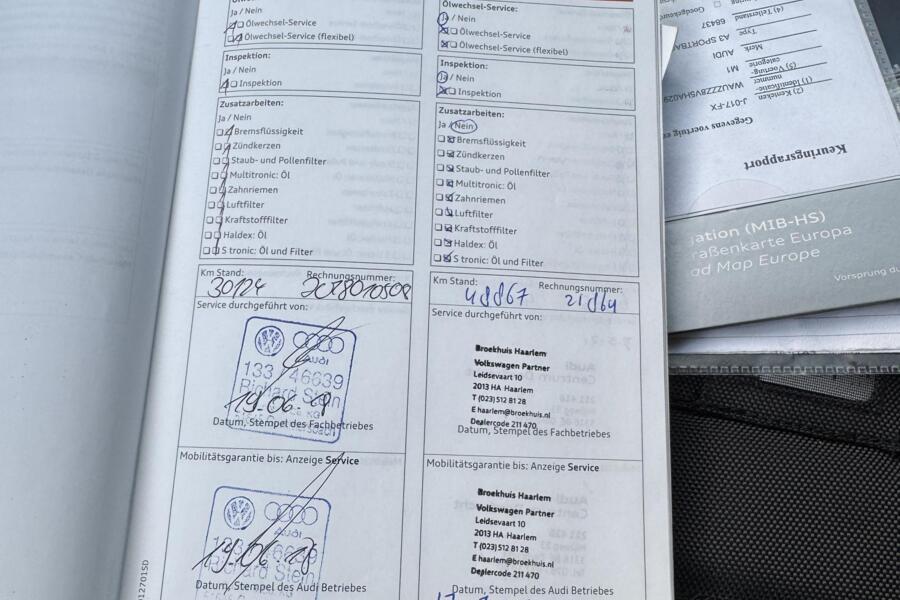 Ja / Nein
Ölwechsel-Service
Ölwechsel-Service (flexibel)
Inspektion:
Ja / Nein
Inspektion
Zusatzarbeiten:
Ja / Nein
Bremsflüssigkeit
Zündkerzen
Staub- und Pollenfilter
Multitronic: Öl
Zahnriemen
Luftfilter
Kraftstofffilter
Haldex: Öl
S tronic: Öl und Filter
Km Stand: Rechnungsnummer:
30124
Service durchgeführt von:
Audi
133 46639
Richard Stein
19.06.18
Datum, Stempel des Fachbetriebes
Mobilitätsgarantie bis: Anzeige Service
Audi
Richard Stein
Datum, Stempel des Audi Betriebes
Ölwechsel-Service:
Ja / Nein
Ölwechsel-Service
Ölwechsel-Service (flexibel)
Inspektion:
Ja / Nein
Inspektion
Zusatzarbeiten:
Ja / Nein
Bremsflüssigkeit
Zündkerzen
Staub- und Pollenfilter
Multitronic: Öl
Zahnriemen
Luftfilter
Kraftstofffilter
Haldex: Öl
S tronic: Öl und Filter
Km Stand: Rechnungsnummer:
48867 21864
Service durchgeführt von:
Broekhuis Haarlem
Volkswagen Partner
Leidsevaart 10
2013 HA Haarlem
T (023) 512 81 28
E haarlem@broekhuis.nl
Dealercode 211 470
Datum, Stempel des Fachbetriebes
Mobilitätsgarantie bis: Anzeige Service
Broekhuis Haarlem
Volkswagen Partner
Leidsevaart 10
2013 HA Haarlem
T (023) 512 81 28
E haarlem@broekhuis.nl
Dealercode 211 470
Datum, Stempel des Audi Betriebes
Keuringsrapport
Gegevens voertuig
(2) Kenteken J-017-FX
(1) Identificatie-
nummer WAUZZZ8V5HA029
(5) Voertuig-
categorie M1
Merk AUDI
Type A3 SPORTBA
(4) Tellerstand 68437
Goedgekeurd
gation (MIB-HS)
raßenkarte Europa
ad Map Europe
Vorsprung du